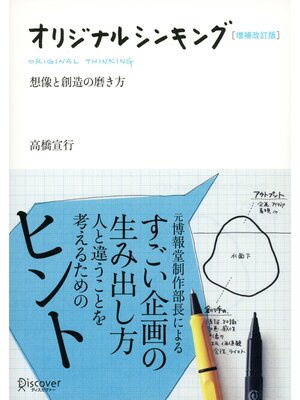 オリジナルシンキング[増補改訂版]
ORIGINAL THINKING
想像と創造の磨き方
高橋宣行
元博報堂制作部長による
すごい企画の
生み出し方
人と違うことを
考えるための
ヒント
アウトプット
水面下
Discover
ディスカヴァー